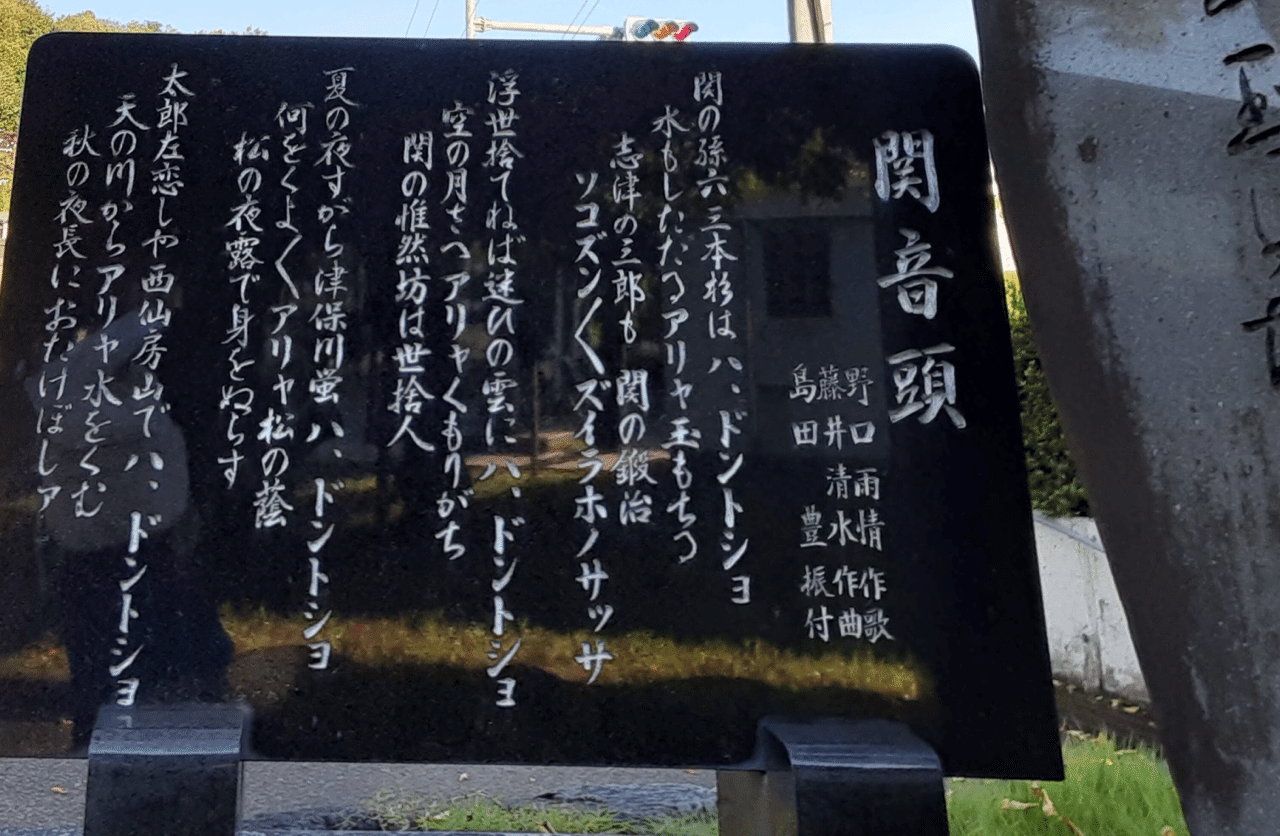 関音頭
野口雨情 作歌
藤井清水 作曲
島田豊 振付
関の孫六三本杉は ハ、ドントショ
水もしたたるアリヤ玉もちる
志津の三郎も 関の鍛治
ソコズン〱ズイラホノサッサ
浮世捨てねば迷ひの雲に ハ、ドントショ
空の月さへアリャくもりがち
関の惟然坊は世捨人
夏の夜すがら津保川蛍 ハ、ドントショ
何をくよ〱アリヤ松の蔭
松の夜露で身をぬらす
太郎左恋しや西仙房山で ハ、ドントショ
天の川からアリャ水をくむ
秋の夜長におたけぼしア